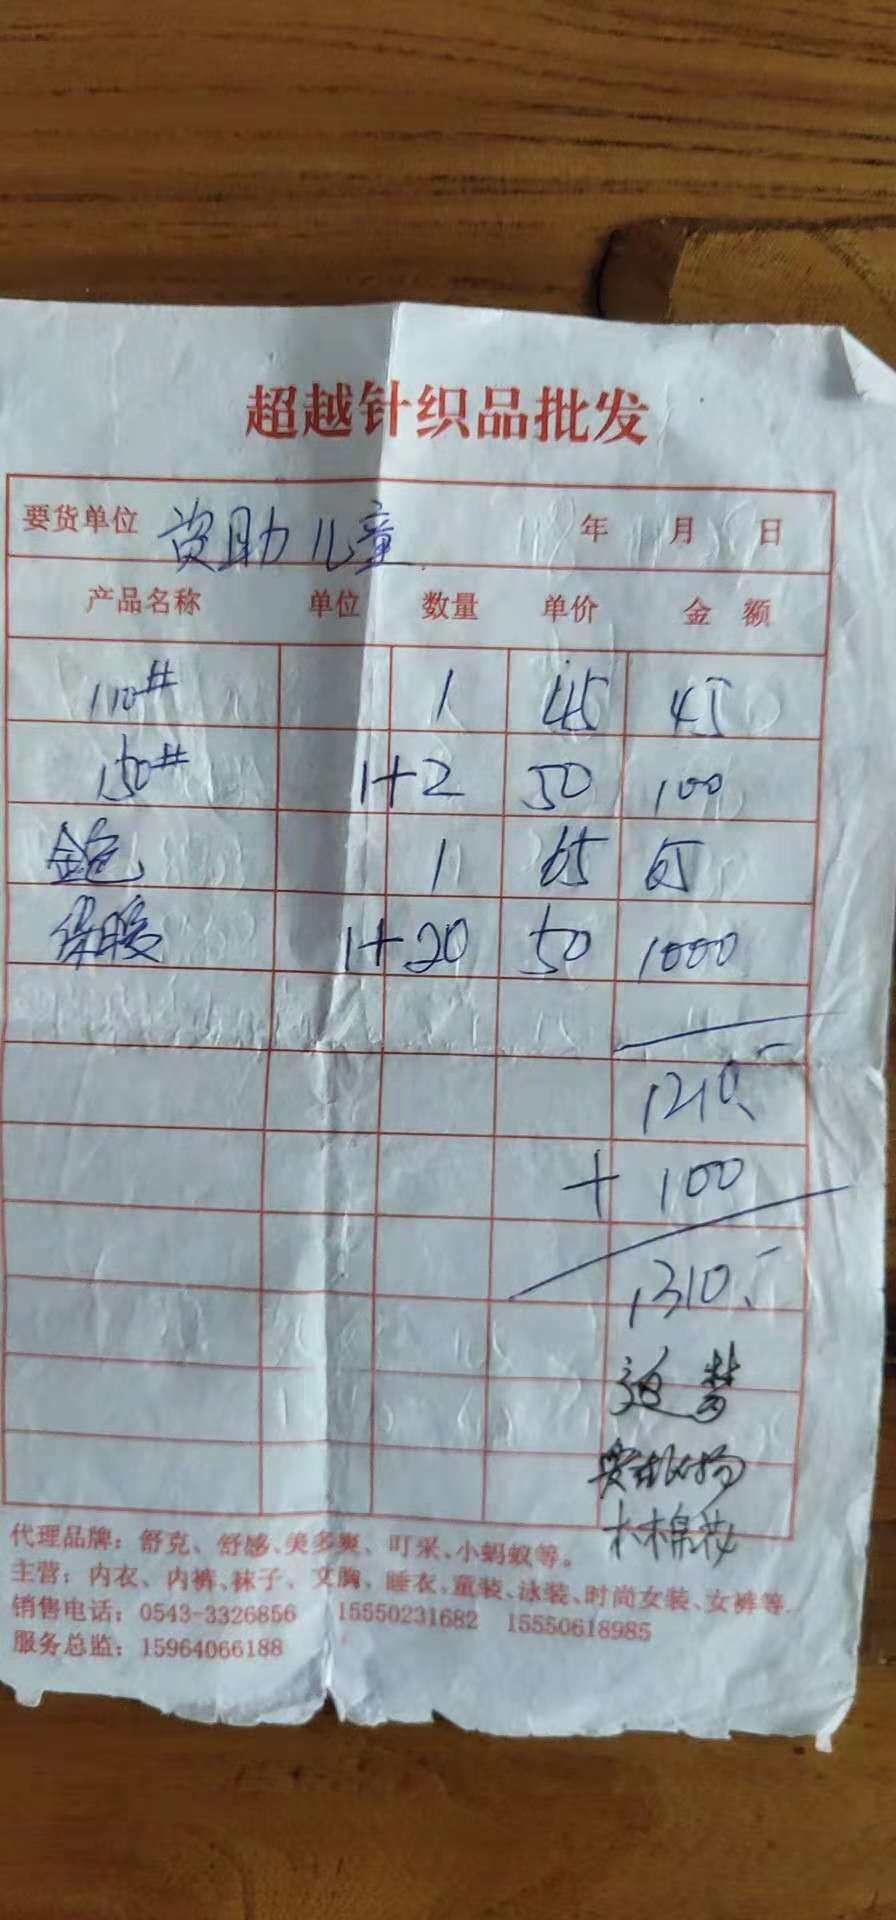 超越针织品批发
要货单位 资助儿童 年 月 日
产品名称 单位 数量 单价 金额
110# 1 45 45
150# 1+2 50 100
金色 1 65 65
保暖 1+20 50 1000
1210.-
+ 100
1310.-
追梦
木棉花
代理品牌：舒克、舒感、美多爽、叮呆、小蚂蚁等。
主营：内衣、内裤、袜子、文胸、睡衣、童装、泳装、时尚女装、女裤等.
销售电话：0543-3326856 15550231682 15550618985
服务总监：15964066188